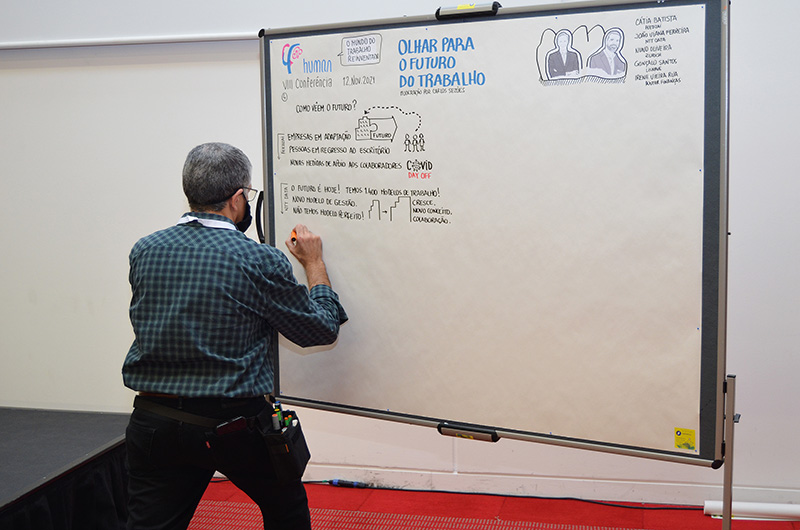 human
VIII Conferência
O MUNDO DO
TRABALHO
REINVENTADO
12.NOV.2021
OLHAR PARA
O FUTURO
DO TRABALHO
CÁTIA BATISTA
JOÃO VIANA FERREIRA
NTT DATA
NUNO OLIVEIRA
GONÇALO SANTOS
IRENE VIEIRA RUA
DOUTOR FINANÇAS
COMO VÊEM O FUTURO?
FUTURO
EMPRESAS EM ADAPTAÇÃO
PESSOAS EM REGRESSO AO ESCRITÓRIO
NOVAS MEDIDAS DE APOIO AOS COLABORADORES
COVID
DAY OFF
NTT DATA
O FUTURO É HOJE! TEMOS 1.400 MODELOS DE TRABALHO!
NOVO MODELO DE GESTÃO.
NÃO TEMOS MODELO PERFEITO!
CRESCE.
NOVO CONCEITO.
COLABORAÇÃO.